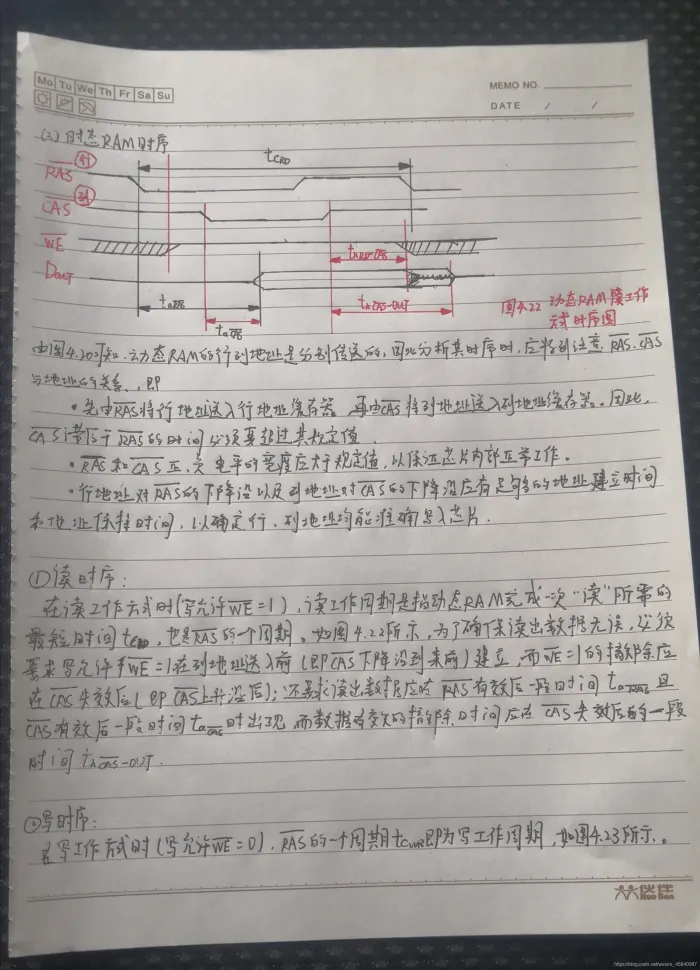 Mo Tu We Th Fr Sa Su
MEMO NO.
DATE / /
(2) 动态RAM时序
tCRD
行
RAS
列
CAS
WE
DOUT
taRAS
taCAS
thCAS-OUT
图4.22 动态RAM读工作
方式时序图
由图4.20可知,动态RAM的行列地址是分别传送的,因此分析其时序时,应特别注意RAS、CAS
与地址的关系,即
·先由RAS将行地址送入行地址缓存器,再由CAS将列地址送入列地址缓存器。因此,
CAS滞后于RAS的时间必须要超过其规定值.
·RAS和CAS正、负电平的宽度应大于规定值,以保证芯片内部正常工作.
·行地址对RAS的下降沿以及列地址对CAS的下降沿应有足够的地址建立时间
和地址保持时间,以确定行、列地址均能准确写入芯片.
①读时序:
在读工作方式时(写允许WE=1),读工作周期是指动态RAM完成一次“读”所需的
最短时间tCRD,也是RAS的一个周期。如图4.22所示,为了确保读出数据无误,必须
要求写允许WE=1在列地址送入前(即CAS下降沿到来前)建立,而WE=1的撤除应
在CAS失效后(即CAS上升沿后);还要求读出数据应在RAS有效后一段时间taRAS且
CAS有效后一段时间taCAS时出现,而数据有效的撤除时间应在CAS失效后的一段
时间thCAS-OUT.
②写时序:
在写工作方式时(写允许WE=0),RAS的一个周期tCWR即为写工作周期,如图4.23所示.
伙伴
Huo Ban